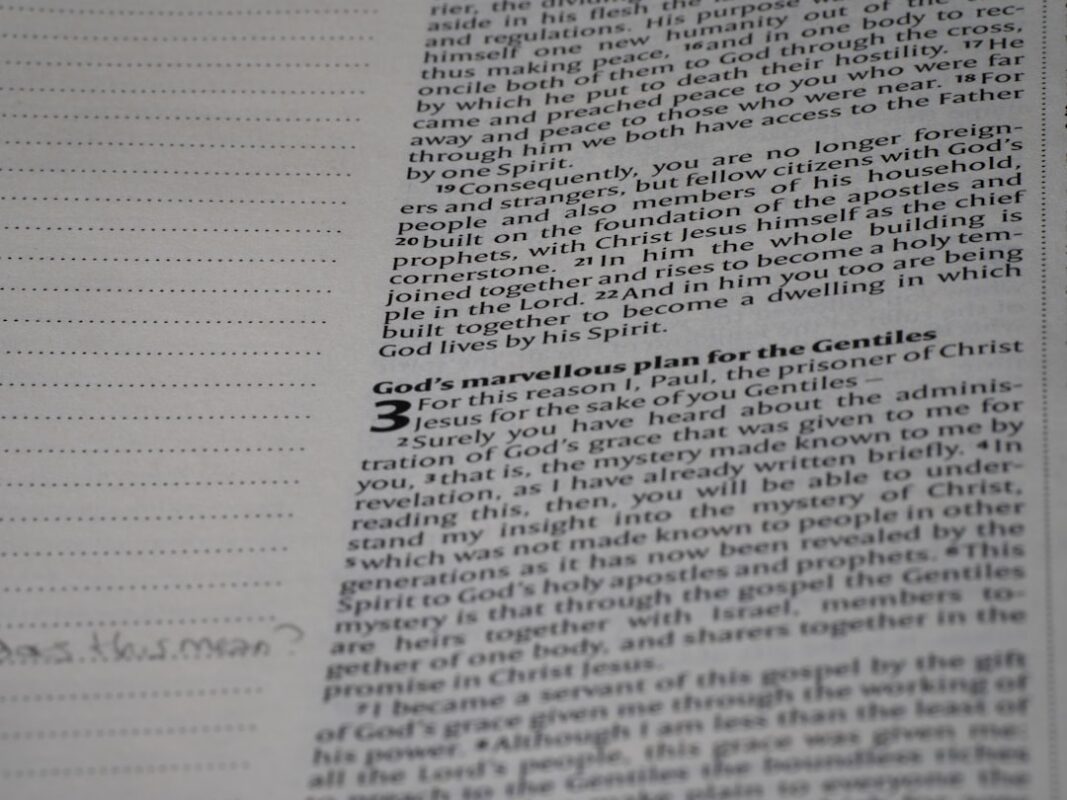 rier, the dividing
aside in his flesh the
and regulations. His purpose was
himself one new humanity out of the
thus making peace, 16and in one body to rec-
oncile both of them to God through the cross,
by which he put to death their hostility. 17He
came and preached peace to you who were far
away and peace to those who were near. 18For
through him we both have access to the Father
by one Spirit.
19Consequently, you are no longer foreign-
ers and strangers, but fellow citizens with God's
people and also members of his household,
20built on the foundation of the apostles and
prophets, with Christ Jesus himself as the chief
cornerstone. 21In him the whole building is
joined together and rises to become a holy tem-
ple in the Lord. 22And in him you too are being
built together to become a dwelling in which
God lives by his Spirit.
God's marvellous plan for the Gentiles
3 For this reason I, Paul, the prisoner of Christ
Jesus for the sake of you Gentiles –
2Surely you have heard about the adminis-
tration of God's grace that was given to me for
you, 3that is, the mystery made known to me by
revelation, as I have already written briefly. 4In
reading this, then, you will be able to under-
stand my insight into the mystery of Christ,
5which was not made known to people in other
generations as it has now been revealed by the
Spirit to God's holy apostles and prophets. 6This
mystery is that through the gospel the Gentiles
are heirs together with Israel, members to-
gether of one body, and sharers together in the
promise in Christ Jesus.
7I became a servant of this gospel by the gift
of God's grace given me through the working of
his power. 8Although I am less than the least of
all the Lord's people, this grace was given me:
to preach to the Gentiles the boundless riches
make plain to everyone the
this mean?